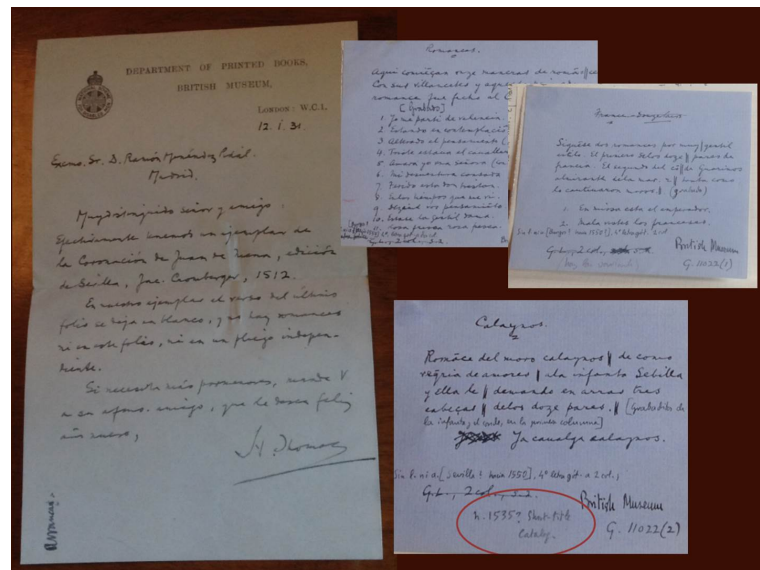 DEPARTMENT OF PRINTED BOOKS,
BRITISH MUSEUM,
LONDON: W.C.1.
12. 1. 31.
Excmo. Sr. D. Ramón Menéndez Pidal.
Madrid.
Muy distinguido señor y amigo.
Efectivamente tenemos un ejemplar de
la Coronación de Juan de Mena, edición
de Sevilla, Jac. Cromberger, 1512.
En nuestro ejemplar el verso del último
folio se deja en blanco, y no hay romances
ni en este folio, ni en un pliego indepen-
diente.
Si necesita más pormenores, mande V
a su afmo. amigo, que le desea feliz
año nuevo,
H. Thomas
Romances.
Aquí comiençan onze maneras de romāces
Con sus villancicos y
romance que fecho al C
[Grabados]
1. Yo me partí de valencia.
2. Estando en contemplació
3. Alterado el pensamiento
4. Triste estava el cavallero
5. Amara yo una señora
6. Mi desventura cansada
7. Passado
8. los tiempos que me vi.
9. Dezime vos pensamiento
10. Estase la gentil dama.
11. Rosa fresca rosa fresca.
G.L., 2 col., s.a.
France-Donzeleces
Síguēse dos romances por muy | gentil
estilo. El primero delos doze || pares de
francia. El segundo del cōde Guarinos
almirante dela mar, || trata como
lo cautivaron moros || (grabado)
1. En missa esta el emperador.
2. Mala vistes los franceses.
G.L., 2 col.,
British Museum
G. 11022(1)
Calaynos.
Romāce del moro calaynos || de como
reqria de amores | ala infanta Sebilla
y ella le || demando en arras tres
cabeças || delos doze pares. || [Grabaditos de
la infanta, el conde, en la primera columna]
Ya cavalga calaynos.
Sin l. ni a. [Sevilla? hacia 1550], 4º letra gót. a 2 col.;
G.L., 2 col., s.a.
n. 1535? Short-title
Catalog.
British Museum
G. 11022(2)